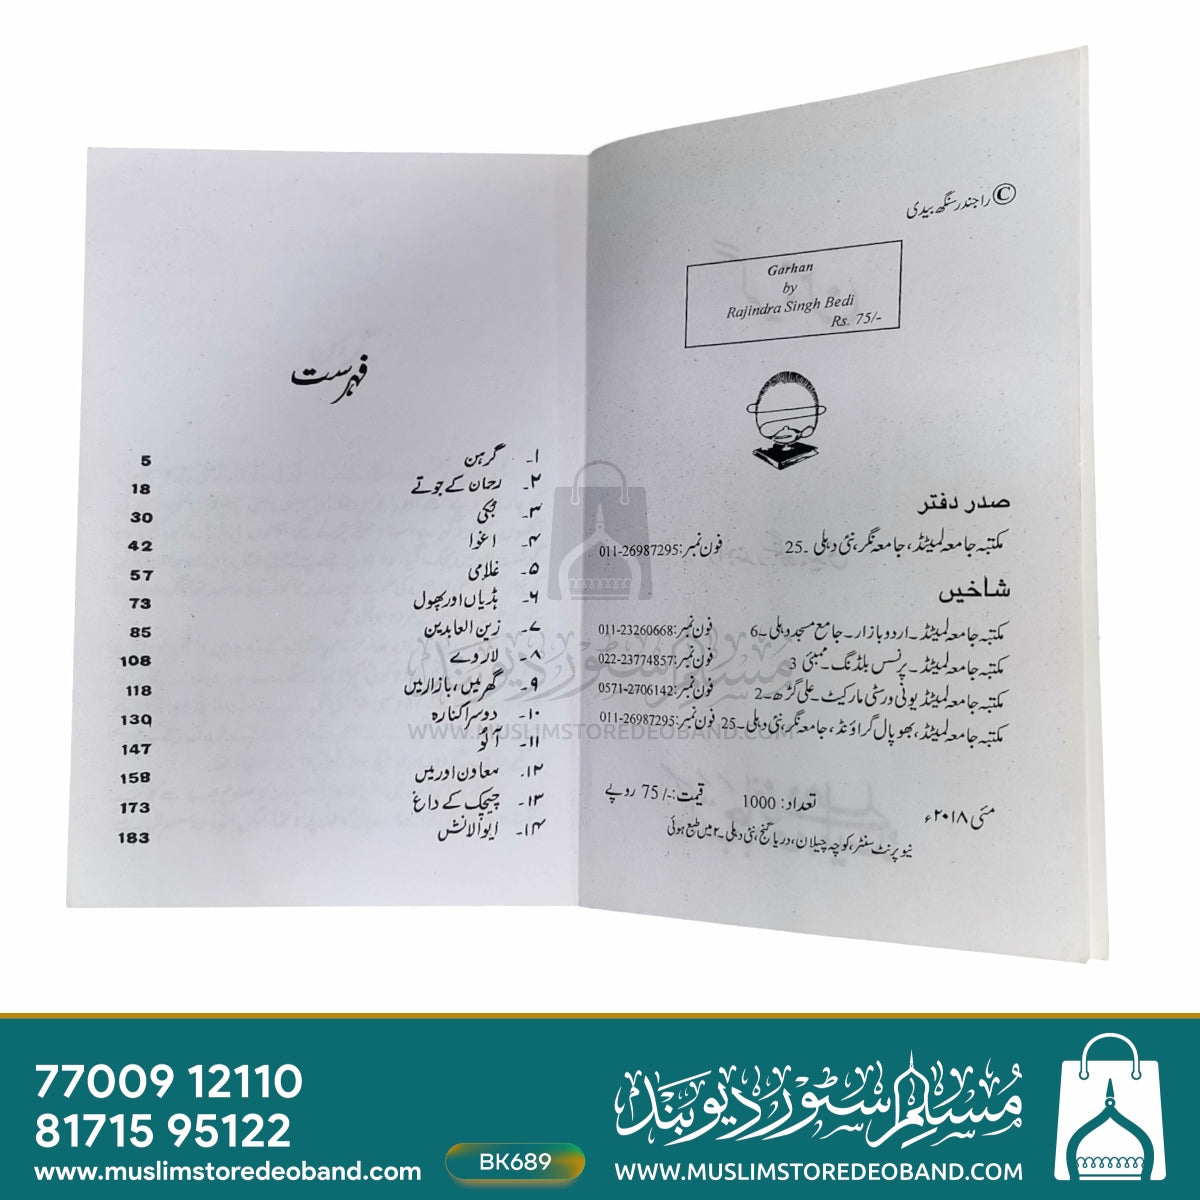 © راجندر سنگھ بیدی
Garhan
by
Rajindra Singh Bedi
Rs. 75/-
صدر دفتر
مکتبہ جامعہ لمیٹڈ، جامعہ نگر، نئی دہلی ۔25 فون نمبر: 011-26987295
شاخیں
مکتبہ جامعہ لمیٹڈ۔ اردو بازار۔ جامع مسجد دہلی۔6 فون نمبر: 011-23260668
مکتبہ جامعہ لمیٹڈ۔ پرنسس بلڈنگ۔ ممبئی 3 فون نمبر: 022-23774857
مکتبہ جامعہ لمیٹڈ یونی ورسٹی مارکیٹ۔ علی گڑھ۔2 فون نمبر: 0571-2706142
مکتبہ جامعہ لمیٹڈ، بھوپال گراؤنڈ، جامعہ نگر، نئی دہلی۔25 فون نمبر: 011-26987295
مئی ۲۰۱۸ء تعداد: 1000 قیمت: -/75 روپے
نیو پرنٹ سنٹر، کوچہ چیلان، دریا گنج، نئی دہلی۔۲ میں طبع ہوئی
فہرست
۱۔ گرہن 5
۲۔ رحمان کے جوتے 18
۳۔ بکّی 30
۴۔ اغوا 42
۵۔ غلامی 57
۶۔ ہڈیاں اور پھول 73
۷۔ زین العابدین 85
۸۔ لاروے 108
۹۔ گھر میں، بازار میں 118
۱۰۔ دوسرا کنارہ 130
۱۱۔ آلو 147
۱۲۔ معاون اور میں 158
۱۳۔ چیچک کے داغ 173
۱۴۔ ایوالانش 183
مسلم سٹور دیوبند
WWW.MUSLIMSTOREDEOBAND.COM
77009 12110
81715 95122
www.muslimstoredeoband.com
BK689
مسلم سٹور دیوبند
WWW.MUSLIMSTOREDEOBAND.COM